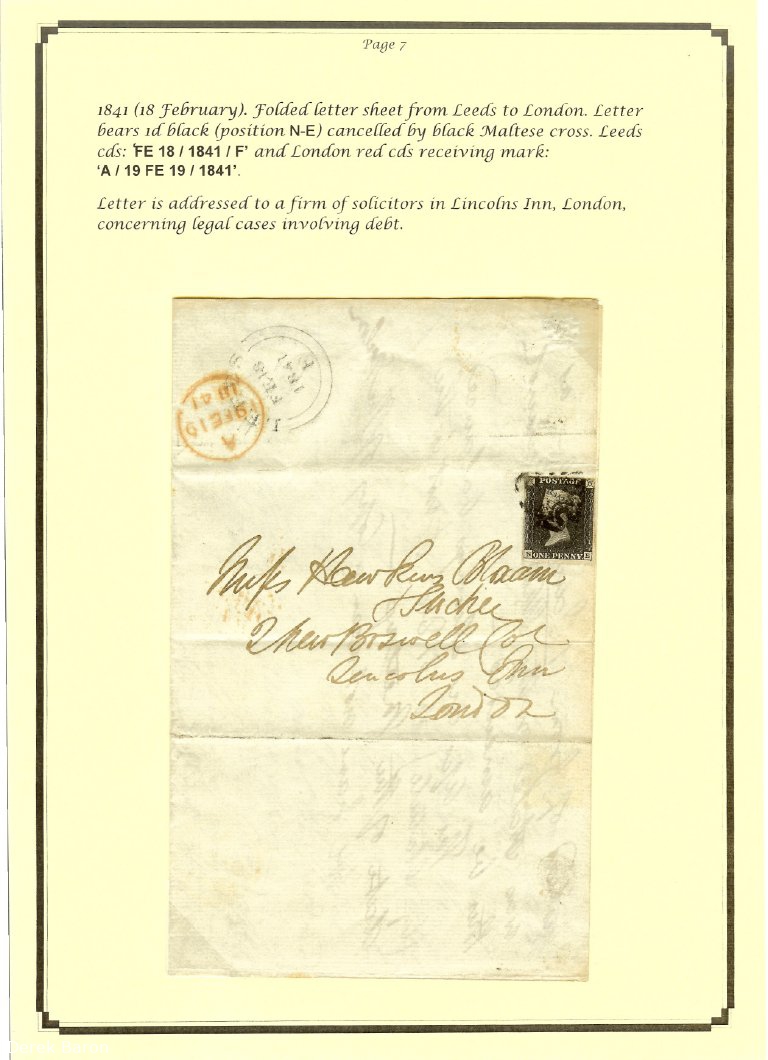 Page 7
1841 (18 February). Folded letter sheet from Leeds to London. Letter
bears 1d black (position N-E) cancelled by black Maltese cross. Leeds
cds: 'FE 18 / 1841 / F' and London red cds receiving mark:
'A / 19 FE 19 / 1841'.
Letter is addressed to a firm of solicitors in Lincolns Inn, London,
concerning legal cases involving debt.
FE 18
1841
F
A
19 FE 19
1841
POSTAGE
N ONE PENNY E
Messrs Hawkins Bloxam
Stocker
2 New Boswell Co
Lincolns Inn
London